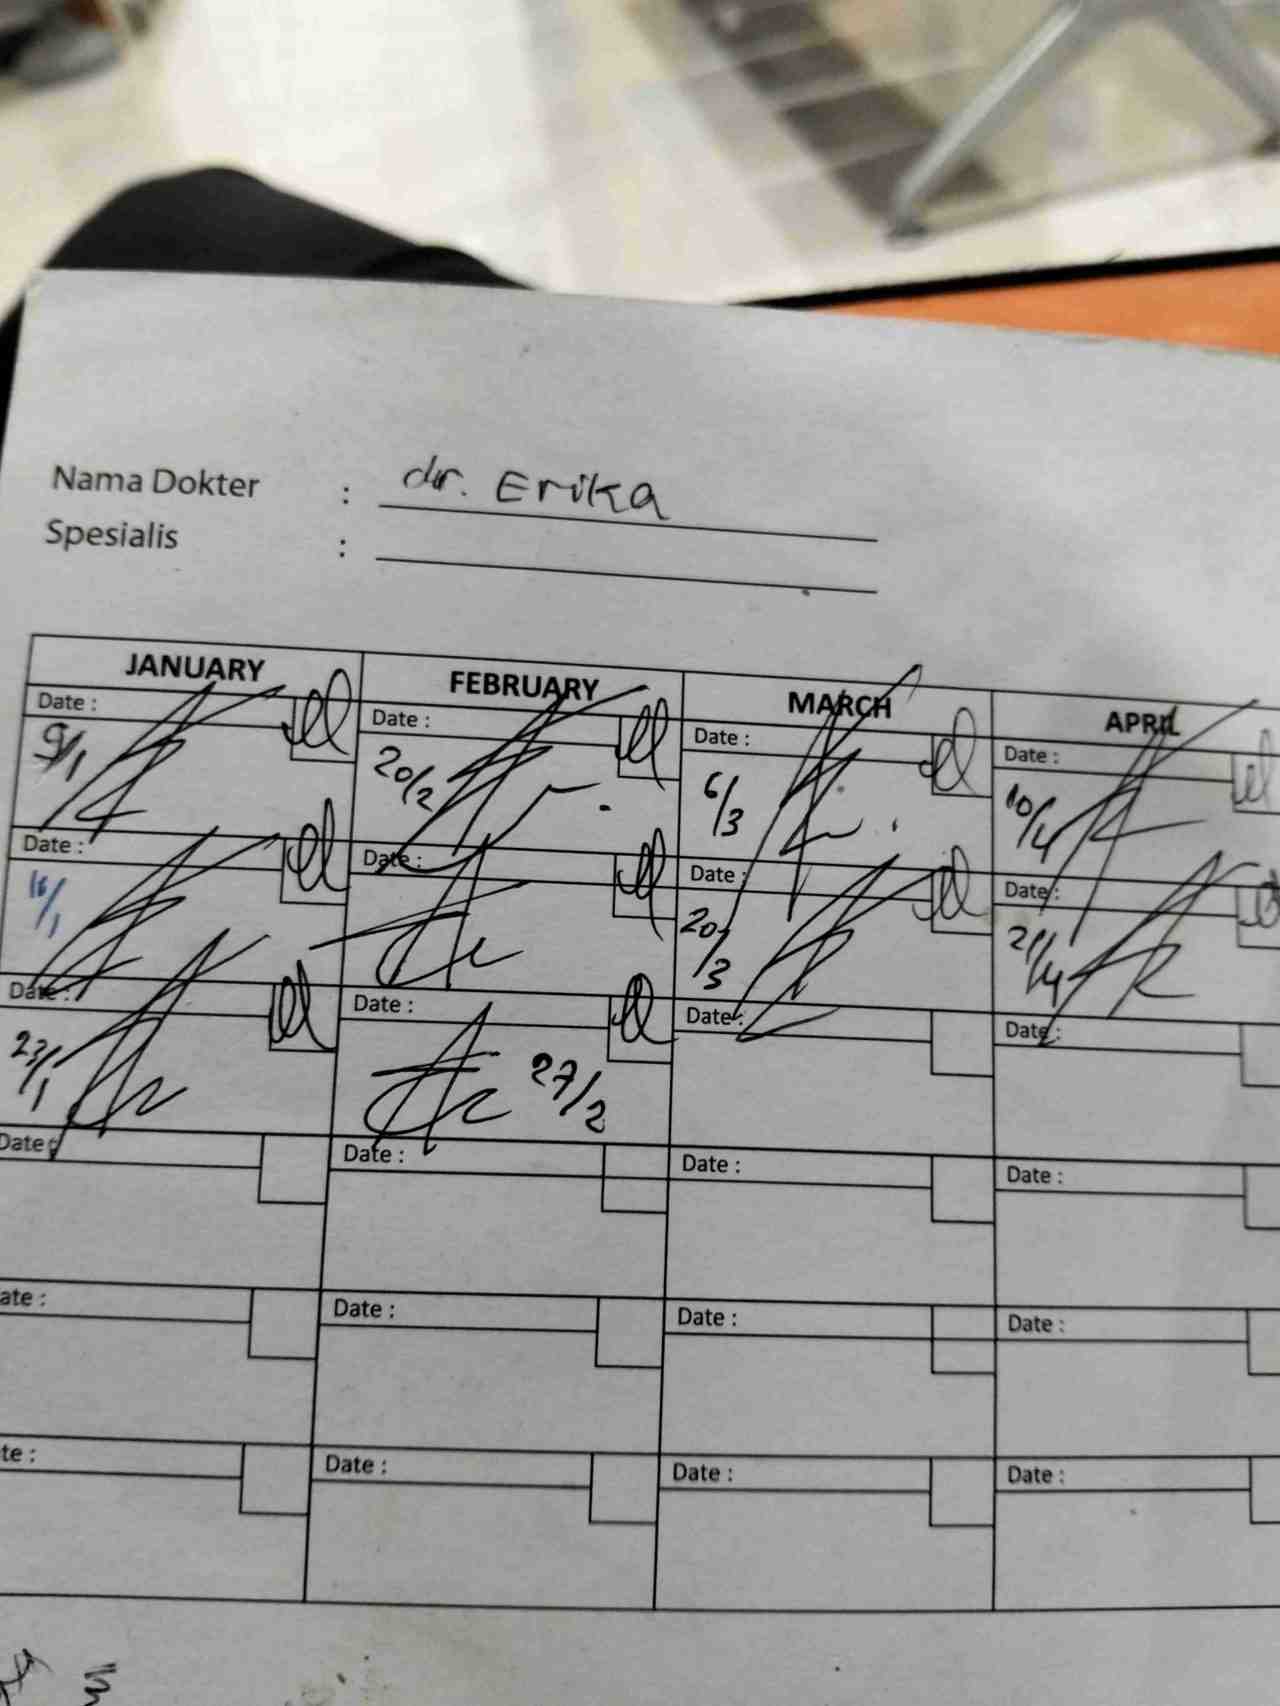 Nama Dokter : dr. Erika
Spesialis :
JANUARY FEBRUARY MARCH APRIL
Date : Date : Date : Date :
9/1 20/2 6/3 10/4
Date : Date : Date : Date :
16/1 20/3 21/4
Date : Date : Date : Date :
23/1 27/2
Date : Date : Date : Date :
ate : Date : Date : Date :
te : Date : Date : Date :